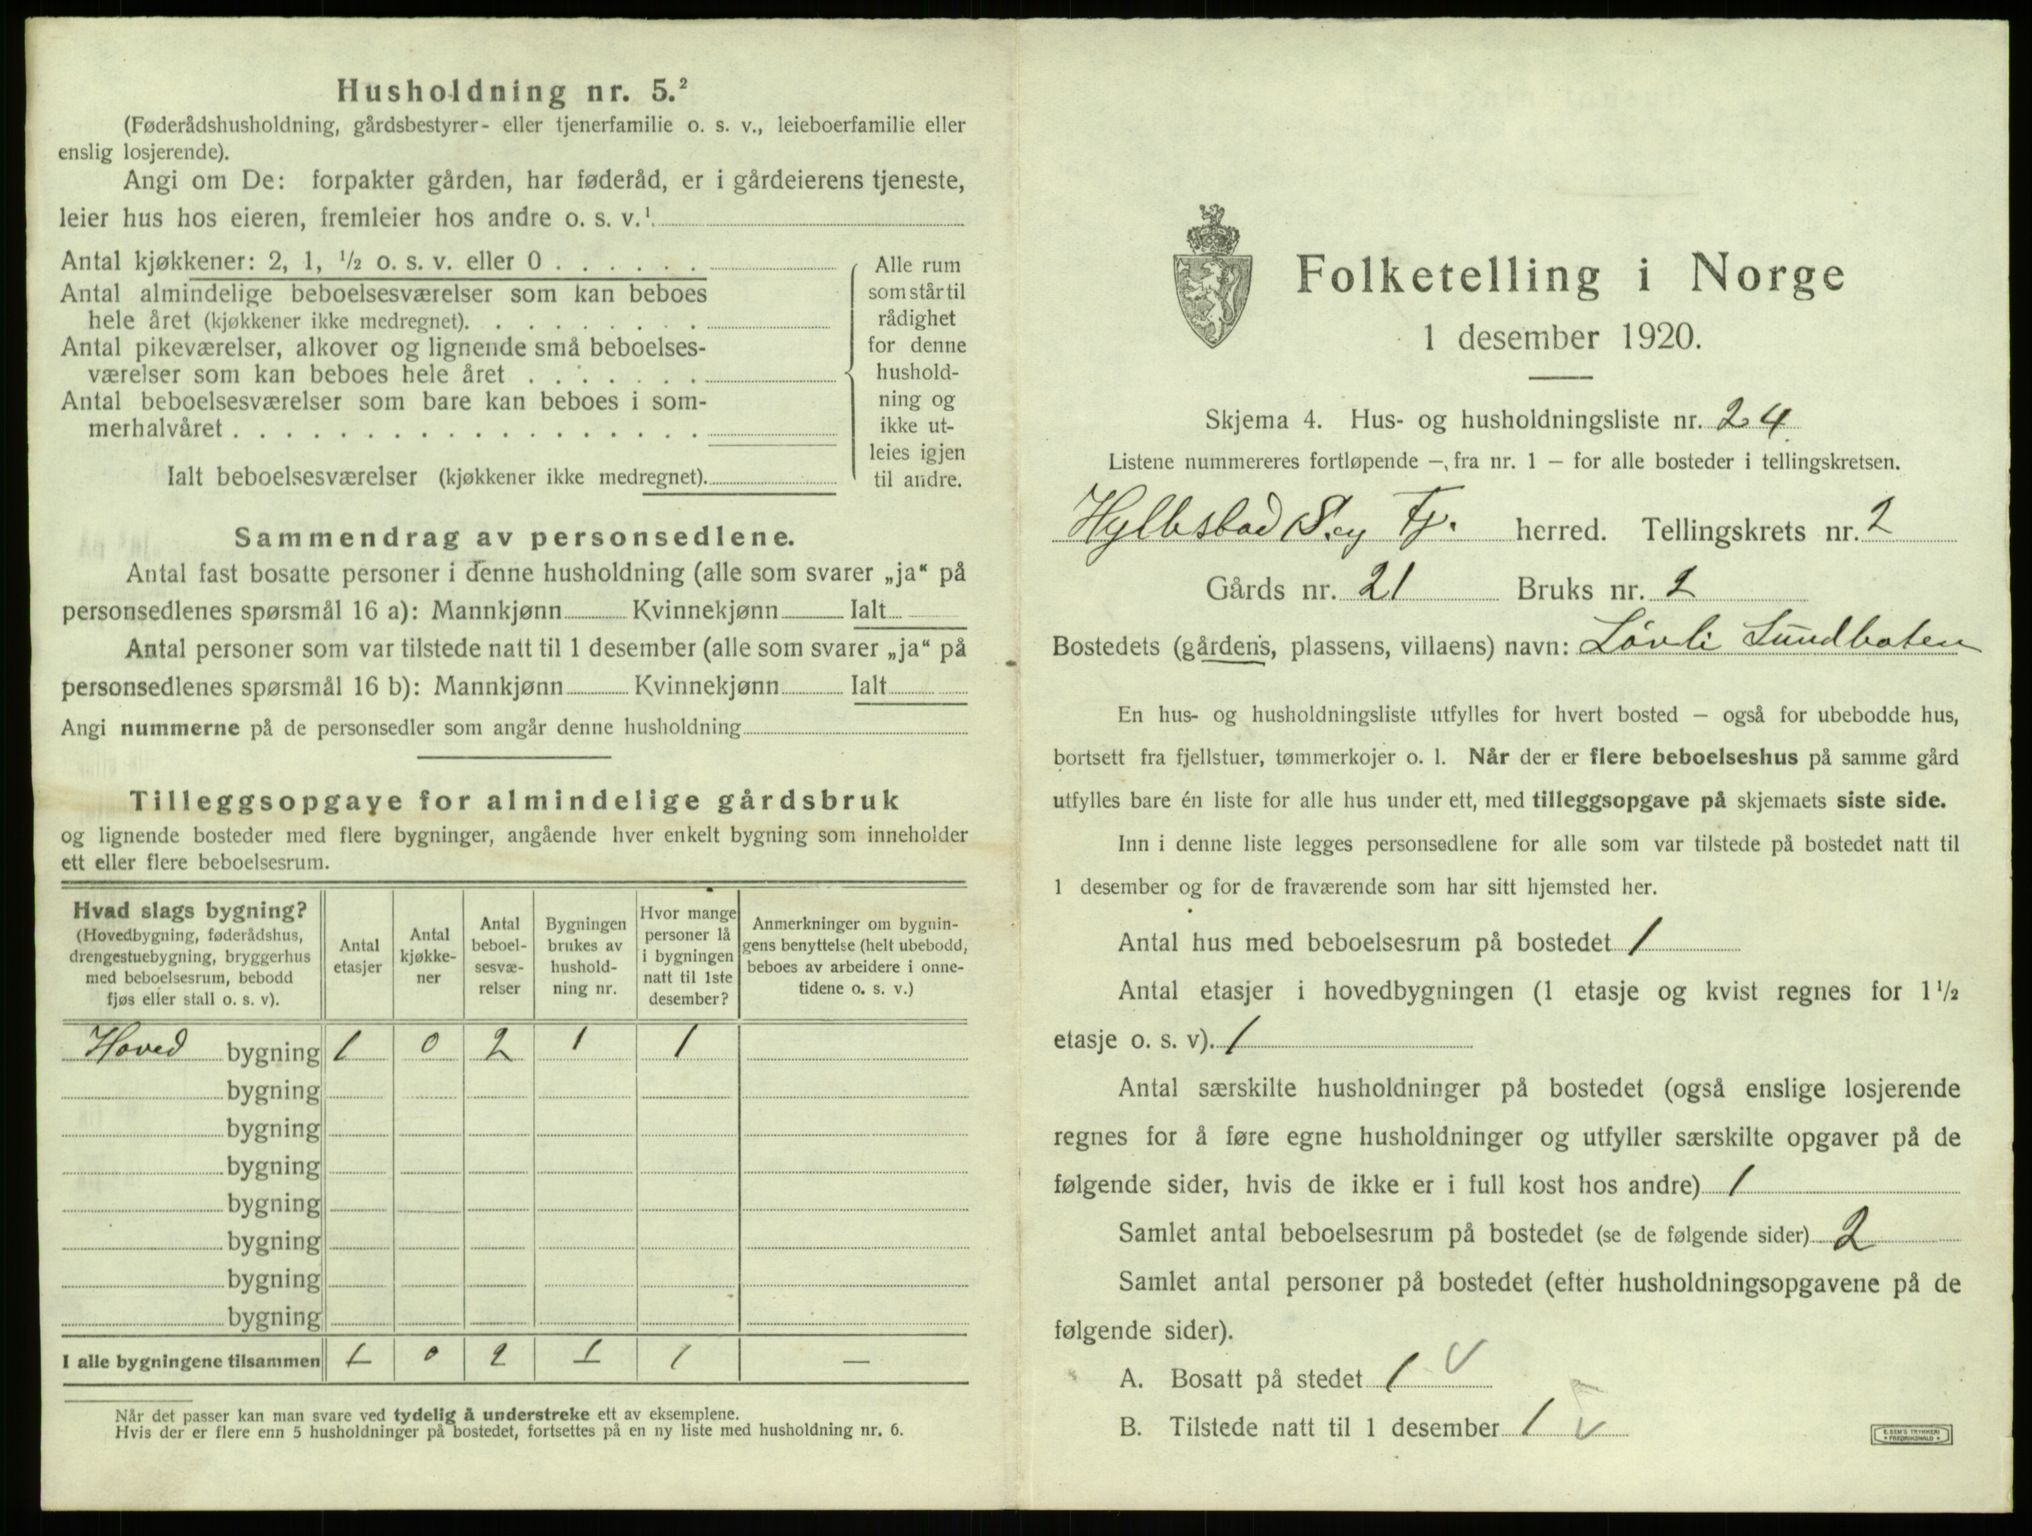 Husholdning nr. 5.²
(Føderådshusholdning, gårdsbestyrer- eller tjenerfamilie o. s. v., leieboerfamilie eller
enslig losjerende).
Angi om De: forpakter gården, har føderåd, er i gårdeierens tjeneste,
leier hus hos eieren, fremleier hos andre o. s. v.¹
Antal kjøkkener: 2, 1, ½ o. s. v. eller 0 . . . . . .
Antal almindelige beboelsesværelser som kan beboes
hele året (kjøkkener ikke medregnet). . . . . . . . .
Antal pikeværelser, alkover og lignende små beboelses-
værelser som kan beboes hele året . . . . . . .
Antal beboelsesværelser som bare kan beboes i som-
merhalvåret . . . . . . . . . . . . . . . . . .
Ialt beboelsesværelser (kjøkkener ikke medregnet).
Alle rum
som står til
rådighet
for denne
hushold-
ning og
ikke ut-
leies igjen
til andre.
Sammendrag av personsedlene.
Antal fast bosatte personer i denne husholdning (alle som svarer „ja“ på
personsedlenes spørsmål 16 a): Mannkjønn Kvinnekjønn Ialt
Antal personer som var tilstede natt til 1 desember (alle som svarer „ja“ på
personsedlenes spørsmål 16 b): Mannkjønn Kvinnekjønn Ialt
Angi nummerne på de personsedler som angår denne husholdning
Tilleggsopgave for almindelige gårdsbruk
og lignende bosteder med flere bygninger, angående hver enkelt bygning som inneholder
ett eller flere beboelsesrum.
Hvad slags bygning?
(Hovedbygning, føderådshus,
drengestuebygning, bryggerhus
med beboelsesrum, bebodd
fjøs eller stall o. s. v).
Antal
etasjer
Antal
kjøkke-
ner
Antal
beboel-
sesvæ-
relser
Bygningen
brukes av
hushold-
ning nr.
Hvor mange
personer lå
i bygningen
natt til 1ste
desember?
Anmerkninger om bygnin-
gens benyttelse (helt ubebodd,
beboes av arbeidere i onne-
tidene o. s. v.)
Hoved bygning 1 0 2 1 1
bygning
bygning
bygning
bygning
bygning
bygning
bygning
I alle bygningene tilsammen 1 0 2 1 1 —
Når det passer kan man svare ved tydelig å understreke ett av eksemplene.
Hvis der er flere enn 5 husholdninger på bostedet, fortsettes på en ny liste med husholdning nr. 6.
Folketelling i Norge
1 desember 1920.
Skjema 4. Hus- og husholdningsliste nr. 24
Listene nummereres fortløpende — fra nr. 1 — for alle bosteder i tellingskretsen.
Hylbstad herred. Tellingskrets nr. 2
Gårds nr. 21 Bruks nr. 2
Bostedets (gårdens, plassens, villaens) navn: Løvli
En hus- og husholdningsliste utfylles for hvert bosted — også for ubebodde hus,
bortsett fra fjellstuer, tømmerkojer o. l. Når der er flere beboelseshus på samme gård
utfylles bare én liste for alle hus under ett, med tilleggsopgave på skjemaets siste side.
Inn i denne liste legges personsedlene for alle som var tilstede på bostedet natt til
1 desember og for de fraværende som har sitt hjemsted her.
Antal hus med beboelsesrum på bostedet 1
Antal etasjer i hovedbygningen (1 etasje og kvist regnes for 1½
etasje o. s. v). 1
Antal særskilte husholdninger på bostedet (også enslige losjerende
regnes for å føre egne husholdninger og utfyller særskilte opgaver på de
følgende sider, hvis de ikke er i full kost hos andre) 1
Samlet antal beboelsesrum på bostedet (se de følgende sider) 2
Samlet antal personer på bostedet (efter husholdningsopgavene på de
følgende sider).
A. Bosatt på stedet 1
B. Tilstede natt til 1 desember 1
E. SEM'S TRYKKERI
FREDRIKSHALD